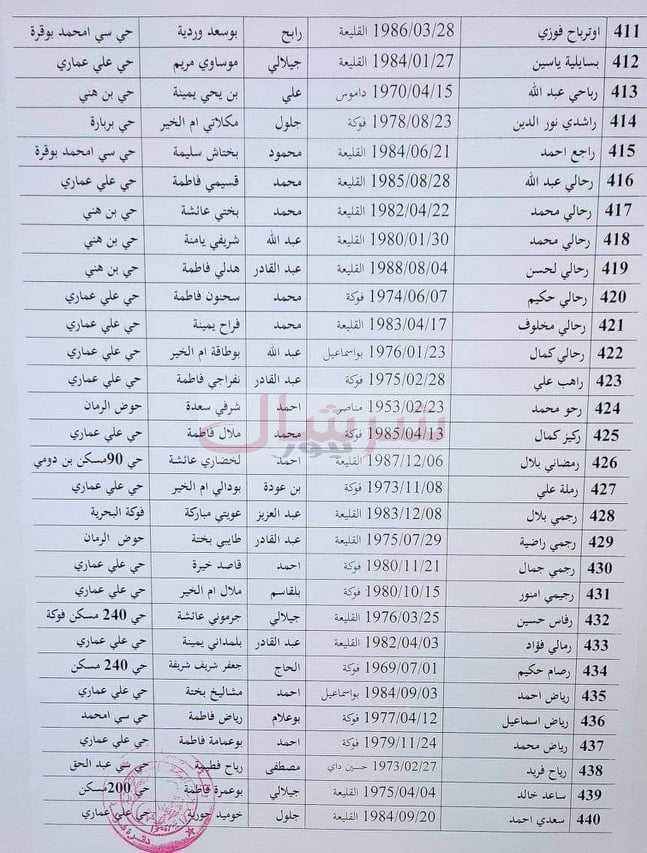 411 اوترباح فوزي 1986/03/28 القليعة رابح بوسعد وردية حي سي امحمد بوقرة
412 بسايلية ياسين 1984/01/27 القليعة جيلالي موساوي مريم حي علي عماري
413 رباحي عبد الله 1970/04/15 داموس علي بن يحي يمينة حي بن هني
414 راشدي نور الدين 1978/08/23 فوكة جلول مكلاتي ام الخير حي بربارة
415 راجع احمد 1984/06/21 القليعة محمود بختاش سليمة حي سي امحمد بوقرة
416 رحالي عبد الله 1985/08/28 القليعة محمد قسيمي فاطمة حي علي عماري
417 رحالي محمد 1982/04/22 القليعة محمد بختي عائشة حي بن هني
418 رحالي محمد 1980/01/30 القليعة عبد الله شريفي يامنة حي بن هني
419 رحالي لحسن 1988/08/04 القليعة عبد القادر هدلي فاطمة حي بن هني
420 رحالي حكيم 1974/06/07 فوكة محمد سحنون فاطمة حي علي عماري
421 رحالي مخلوف 1983/04/17 القليعة محمد فراح يمينة حي علي عماري
422 رحالي كمال 1976/01/23 بواسماعيل عبد الله بوطاقة ام الخير حي علي عماري
423 راهب علي 1975/02/28 فوكة عبد القادر نفراجي فاطمة حي علي عماري
424 رحو محمد 1953/02/23 مناصر احمد شرفي سعدة حوض الرمان
425 ركيز كمال 1985/04/13 فوكة محمد ملال فاطمة حي علي عماري
426 رمضاني بلال 1987/12/06 القليعة احمد لخضاري عائشة حي 90مسكن بن دومي
427 رملة علي 1973/11/08 فوكة بن عودة بودالي ام الخير حي علي عماري
428 رجمي بلال 1983/12/08 القليعة عبد العزيز عويتي مباركة فوكة البحرية
429 رجمي راضية 1975/07/29 القليعة عبد القادر طايبي بختة حوض الرمان
430 رجمي جمال 1980/11/21 فوكة احمد قاصد خيرة حي علي عماري
431 رجيمي امنور 1980/10/15 فوكة بلقاسم ملال ام الخير حي علي عماري
432 رفاس حسين 1976/03/25 القليعة جيلالي جرموني عائشة حي 240 مسكن فوكة
433 رمالي فؤاد 1982/04/03 القليعة عبد القادر بلمداني يمينة حي علي عماري
434 رصام حكيم 1969/07/01 فوكة الحاج جعفر شريف شريفة حي 240 مسكن
435 رياض احمد 1984/09/03 بواسماعيل احمد مشاليخ بختة حي علي عماري
436 رياض اسماعيل 1977/04/12 فوكة بوعلام رياض فاطمة حي سي امحمد
437 رياض محمد 1979/11/24 فوكة احمد بوعمامة فاطمة حي علي عماري
438 رياح فريد 1973/02/27 حسين داي مصطفى رياح فطيمة حي عبد الحق
439 ساعد خالد 1975/04/04 القليعة جيلالي بوعمرة فاطمة حي 200مسكن
440 سعدي احمد 1984/09/20 القليعة جلول خوميد جورية حي علي عماري
شرشال
نيوز